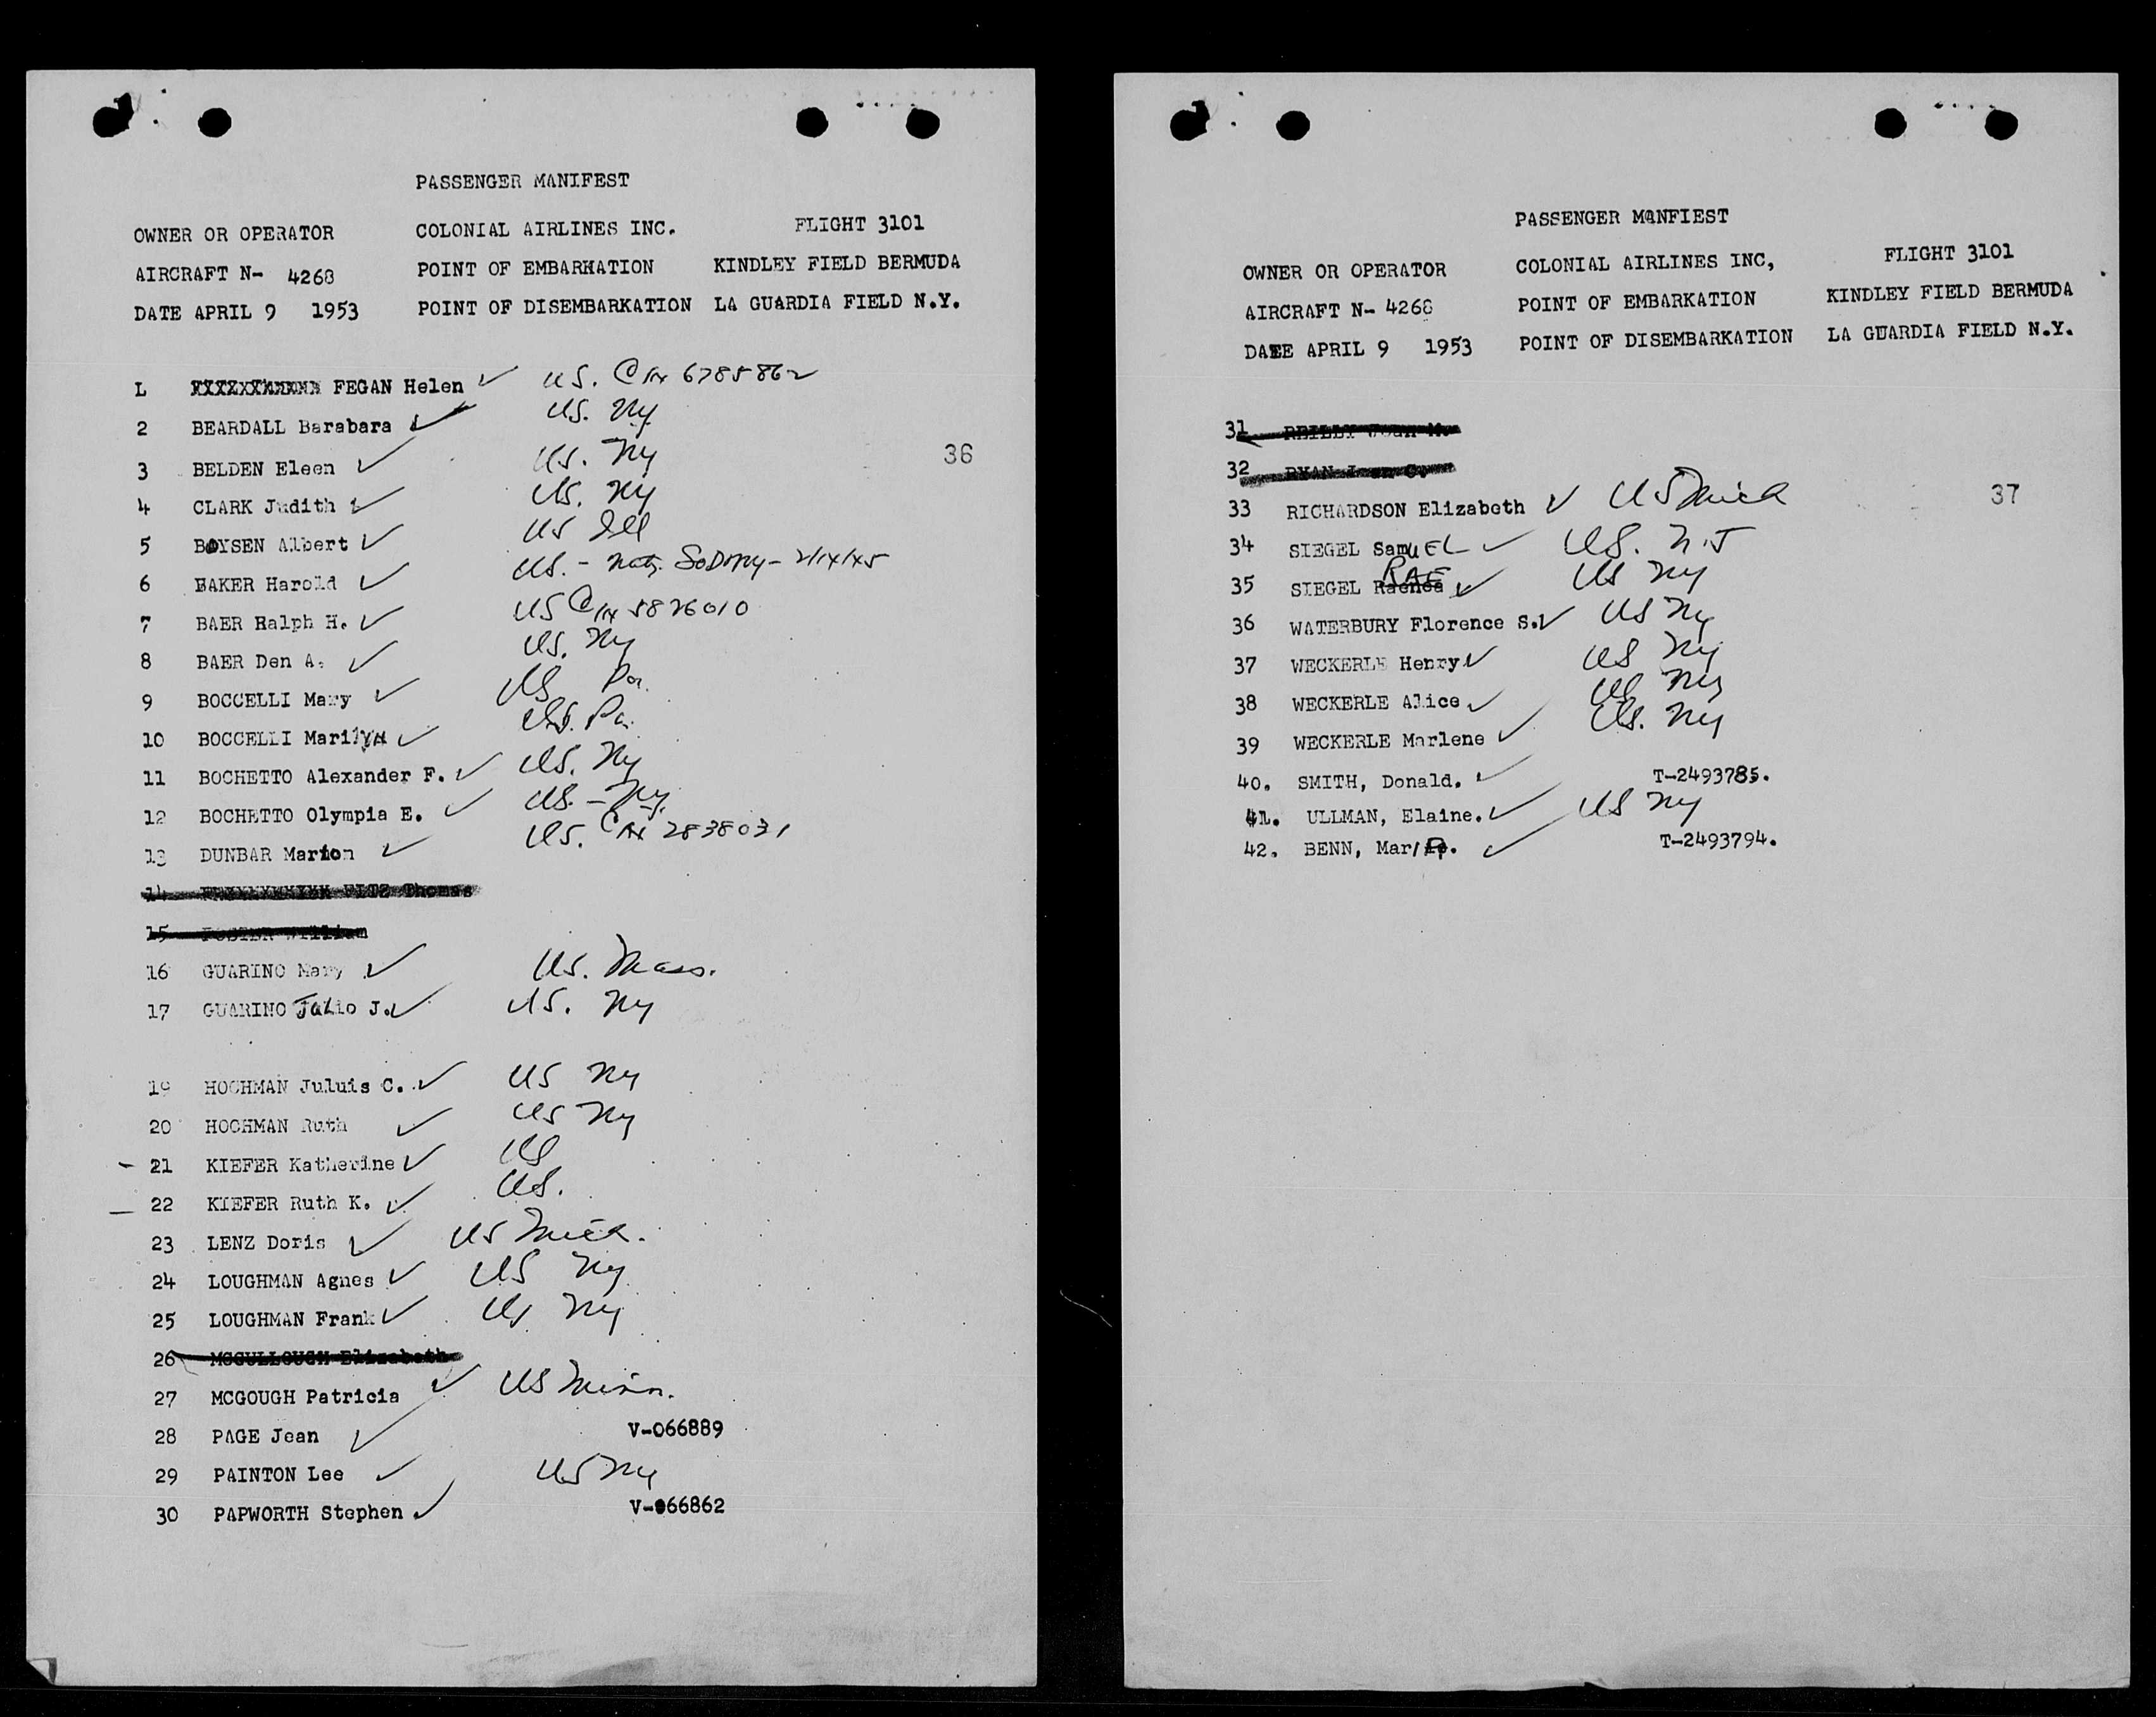 PASSENGER MANIFEST
OWNER OR OPERATOR COLONIAL AIRLINES INC. FLIGHT 3101
AIRCRAFT N- 4268 POINT OF EMBARKATION KINDLEY FIELD BERMUDA
DATE APRIL 9 1953 POINT OF DISEMBARKATION LA GUARDIA FIELD N.Y.
L FEGAN Helen ✓ US. 6785862
2 BEARDALL Barabara ✓ US. NY
3 BELDEN Eleen ✓ US. NY
36
4 CLARK Judith ✓ US. NY
5 BOYSEN Albert ✓ US Ill
6 BAKER Harold ✓ US. - Natz. SoDNY - 2/14/45
7 BAER Ralph H. ✓ US 5826010
8 BAER Den A. ✓ US. NY
9 BOCCELLI Mary ✓ US Pa.
10 BOCCELLI Marilyn ✓ US. Pa.
11 BOCHETTO Alexander F. ✓ US. NY
12 BOCHETTO Olympia E. ✓ US. - NY.
13 DUNBAR Marion ✓ US. 2838031
14 FITZ Thomas
15 FOSTER William
16 GUARINO Mary ✓ US. Mass.
17 GUARINO Julio J. ✓ US. NY
19 HOCHMAN Juluis C. ✓ US NY
20 HOCHMAN Ruth ✓ US NY
- 21 KIEFER Katherine ✓ US
- 22 KIEFER Ruth K. ✓ US.
23 LENZ Doris ✓ US Mich.
24 LOUGHMAN Agnes ✓ US NY
25 LOUGHMAN Frank ✓ US NY
26 MCCULLOUGH Elizabeth
27 MCGOUGH Patricia ✓ US Minn.
28 PAGE Jean ✓ V-066889
29 PAINTON Lee ✓ US NY
30 PAPWORTH Stephen ✓ V-066862
PASSENGER MANFIEST
OWNER OR OPERATOR COLONIAL AIRLINES INC, FLIGHT 3101
AIRCRAFT N- 4268 POINT OF EMBARKATION KINDLEY FIELD BERMUDA
DATE APRIL 9 1953 POINT OF DISEMBARKATION LA GUARDIA FIELD N.Y.
31 REILLY Joan M.
32 RYAN
33 RICHARDSON Elizabeth ✓ US Mich
37
34 SIEGEL SamuEL ✓ US. N.J
35 SIEGEL RAE ✓ US NY
36 WATERBURY Florence S. ✓ US NY
37 WECKERLE Henry ✓ US NY
38 WECKERLE Alice ✓ US NY
39 WECKERLE Marlene ✓ US. NY
40. SMITH, Donald. ✓ T-2493785.
41. ULLMAN, Elaine. ✓ US NY
42. BENN, ✓ T-2493794.